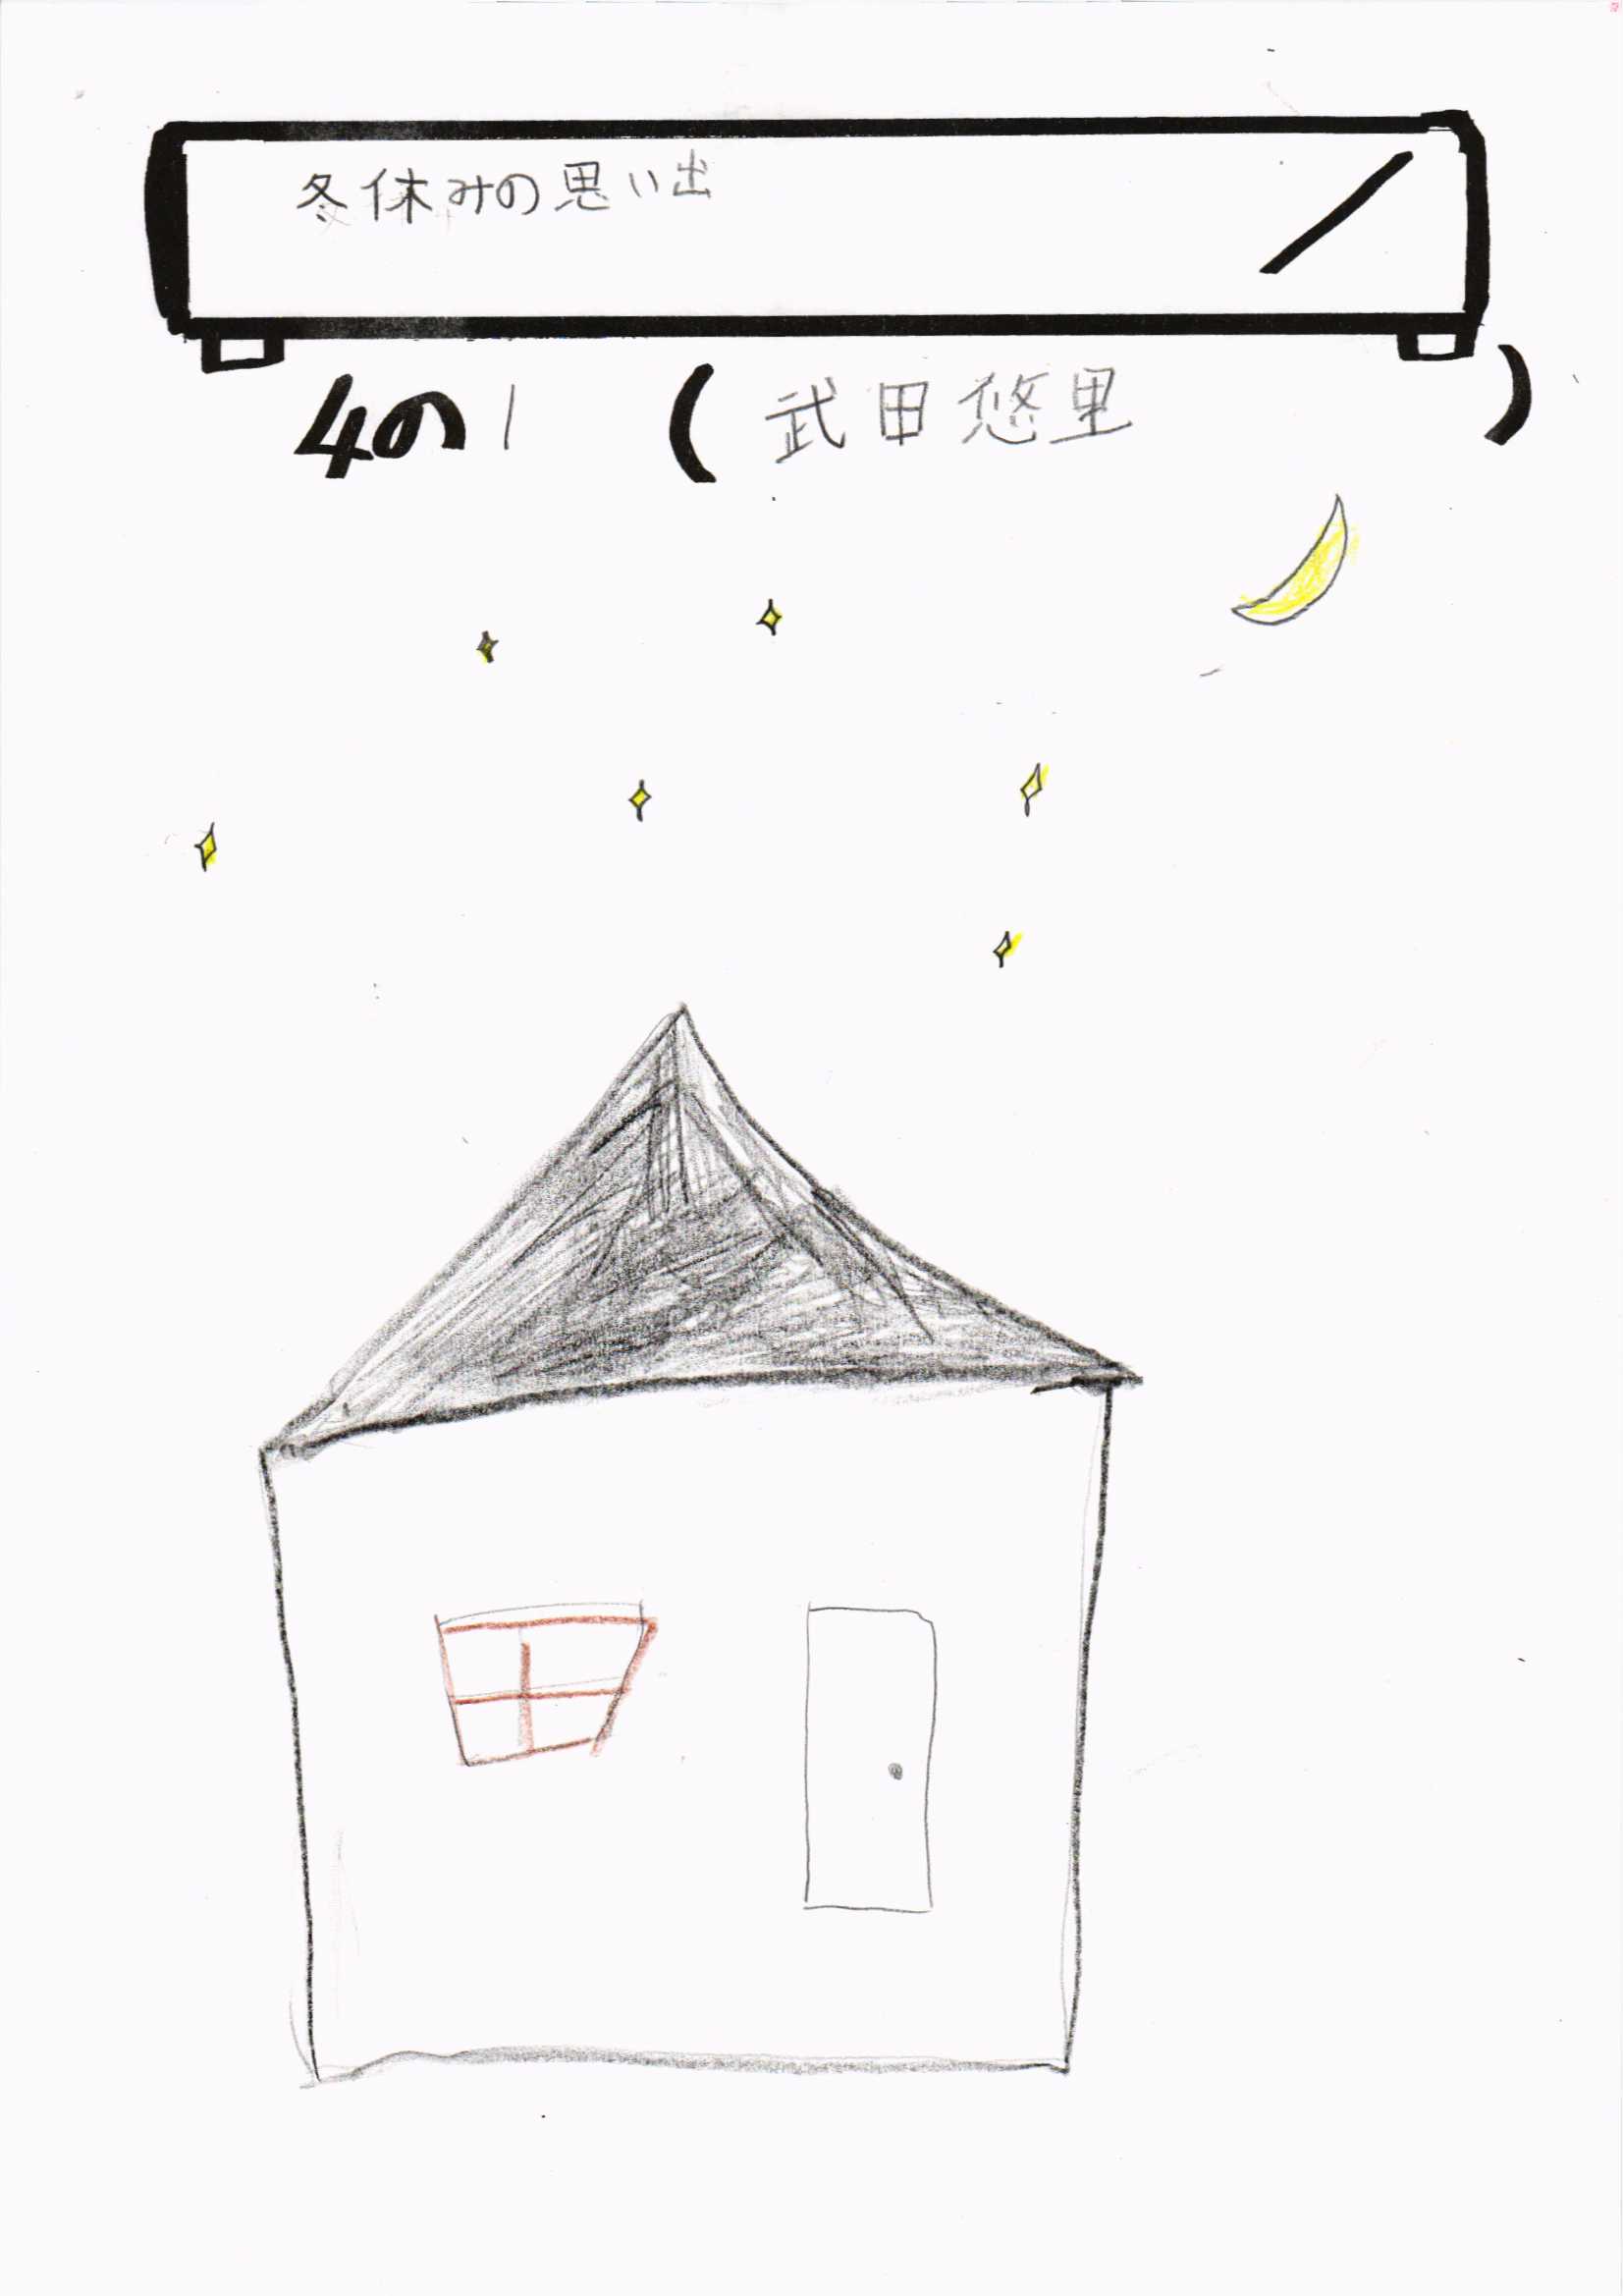 冬休みの思い出
4の1 (武田悠里)